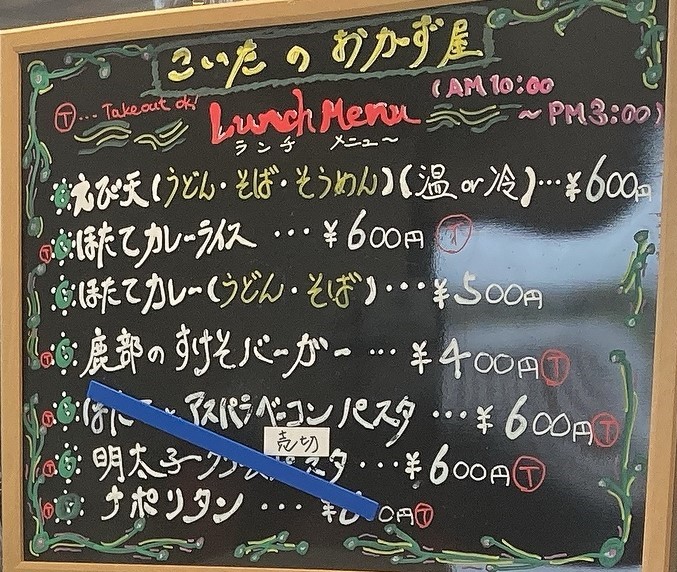 こいたのおかず屋
Ⓣ…Takeout ok!
Lunch Menu
ランチ メニュ～
(AM10:00
～PM3:00)
えび天(うどん・そば・そうめん)(温or冷)…¥600円
Ⓣほたてカレーライス…¥600円Ⓣ
ほたてカレー(うどん・そば)…¥500円
Ⓣ鹿部のすけそバーガー…¥400円Ⓣ
Ⓣほたて アスパラベーコンパスタ…¥600円Ⓣ
売切
Ⓣ明太子 パスタ…¥600円Ⓣ
Ⓣナポリタン…¥ 円Ⓣ